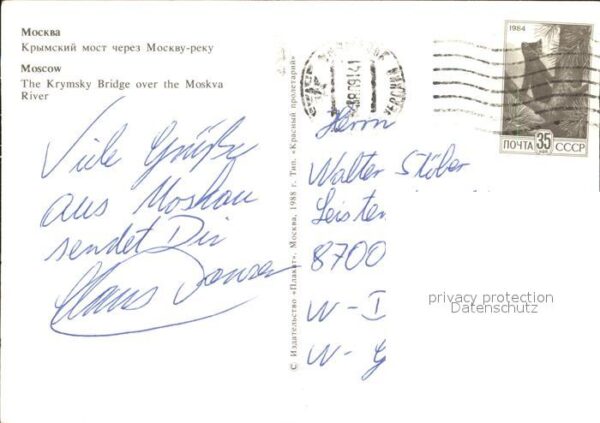 Москва
Крымский мост через Москву-реку
Moscow
The Krymsky Bridge over the Moskva
River
Viele Grüße
aus Moskau
sendet Dir
Claus
© Издательство «Плакат», Москва, 1988 г. Тип. «Красный пролетарий»
1984
ПОЧТА 35 СССР
Herrn
Walter Stöber
Leisten
8700
W-
W-G
privacy protection
Datenschutz